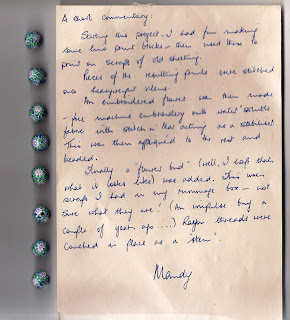 A short commentary:
Starting this project, I had fun making
some lino print blocks - then used them to
print on scraps of old sheeting.
Pieces of the resulting prints were stitched
onto heavyweight vilene.
An embroidered flower was then made
- free machine embroidery onto water soluble
fabric with stitch n' tear acting as a stabiliser.
This was then appliqued to the rest and
beaded.
Finally a "flower bud" (well, I hope that's
what it looks like) was added. This uses
scraps I had in my rummage box - not
sure what they are! (An impulse buy a
couple of years ago ....) Rayon threads were
couched in place as a "stem".
Mandy